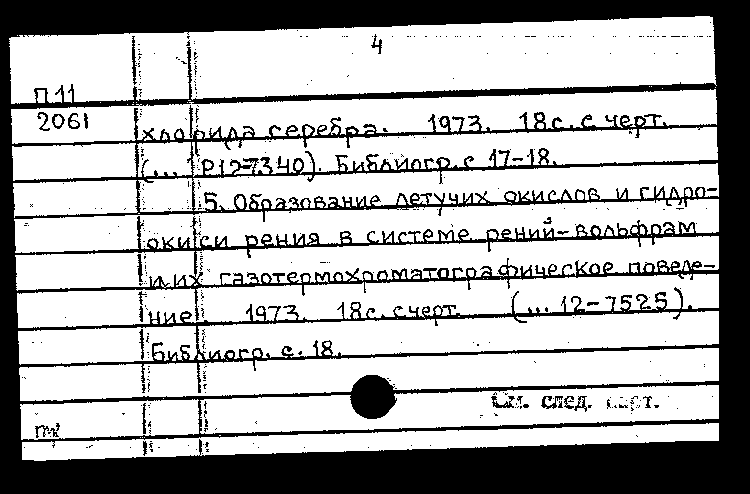 4
П11
2061
хлорида серебра. 1973. 18 с. с черт.
(... Р12-7340). Библиогр. с 17-18.
5. Образование летучих окислов и гидро-
окиси рения в системе рений-вольфрам
и их газотермохроматографическое поведе-
ние 1973. 18 с. с черт. (... 12-7525).
Библиогр. с. 18.
См. след. карт.